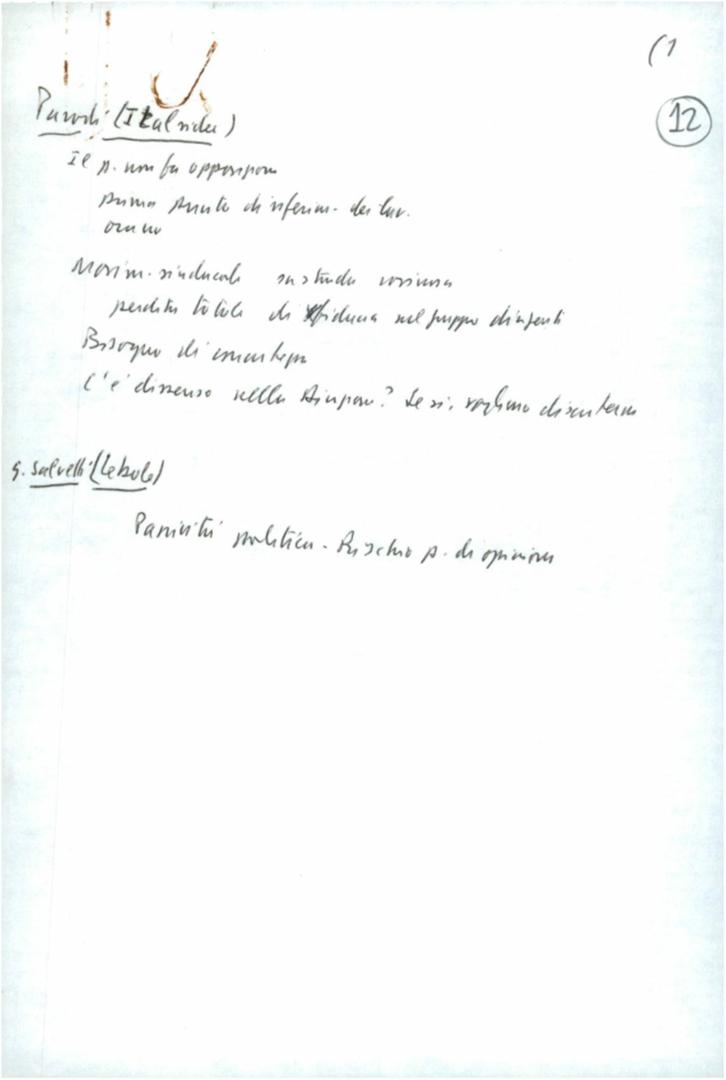 (1
12
Parodi (Italsider)
Il p. non fa opposizione
primo punto di riferim. dei lav.
Movim. sindacale su strada rovinosa
perdita totale di fiducia nel gruppo dirigenti
Bisogno di
C'è dissenso nella ? Se sì, vogliamo discuterne
G. Salvelli (Lebole)
Passività politica - Rischio p. di opinione